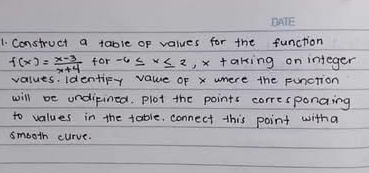 DATE
1. Construct a table of values for the function
f(x) = x-3/x+4 for -6 ≤ x ≤ 2, x taking on integer
values. Identify value of x where the function
will be undifined. plot the points corresponding
to values in the table. connect this point with a
smooth curve.